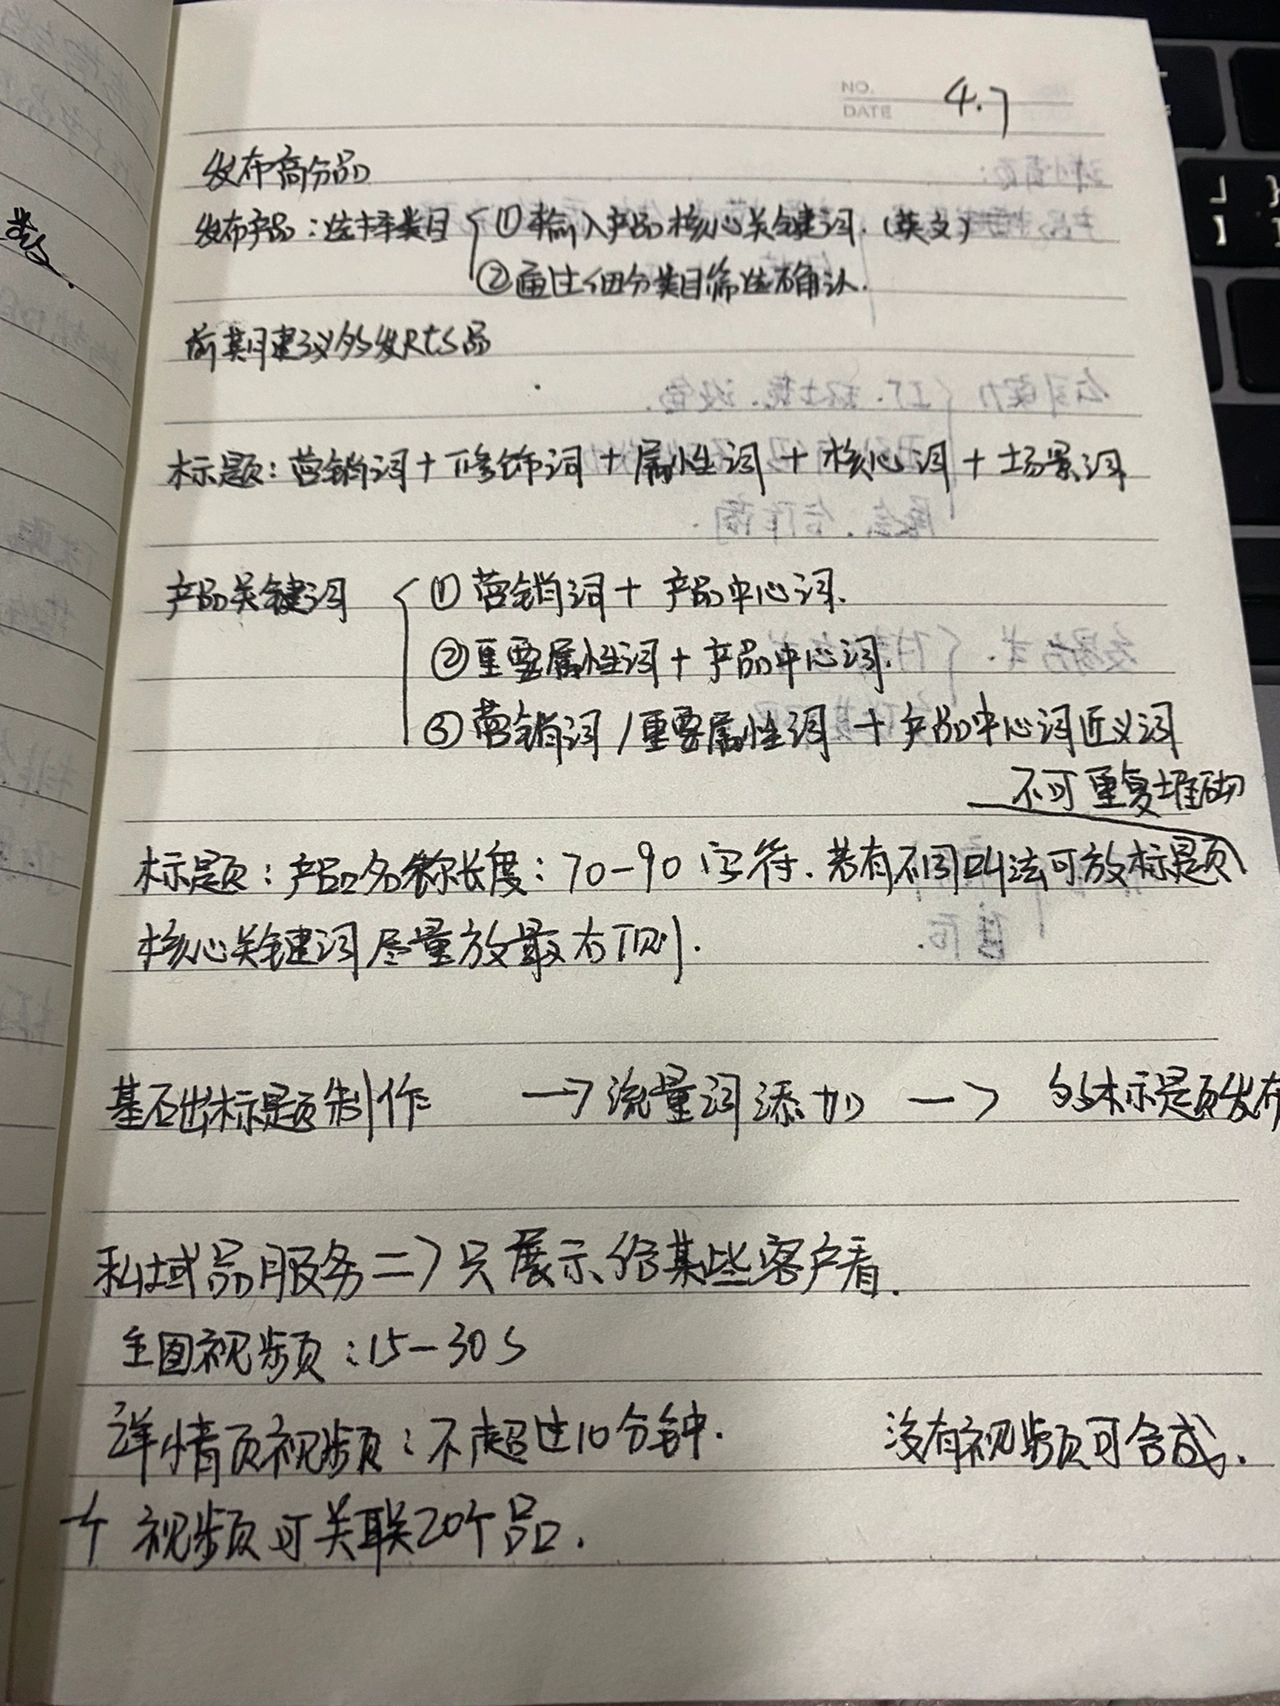 NO.
DATE 4.7
发布高分品
发布产品：选择类目 ①输入产品核心关键词.(英文)
②通过细分类目筛选确认.
前期建议多发RTS品
标题：营销词+修饰词+属性词+核心词+场景词
产品关键词 ①营销词+产品中心词.
②重要属性词+产品中心词.
③营销词/重要属性词+产品中心词近义词
不可重复堆砌
标题：产品名称长度：70-90字符.若有不同叫法可放标题
核心关键词尽量放最右侧.
基础标题制作 → 流量词添加 → 多标题发布
私域品服务=>只展示给某些客户看.
主图视频：15-30S
详情页视频：不超过10分钟. 没有视频可合成.
个视频可关联20个品.